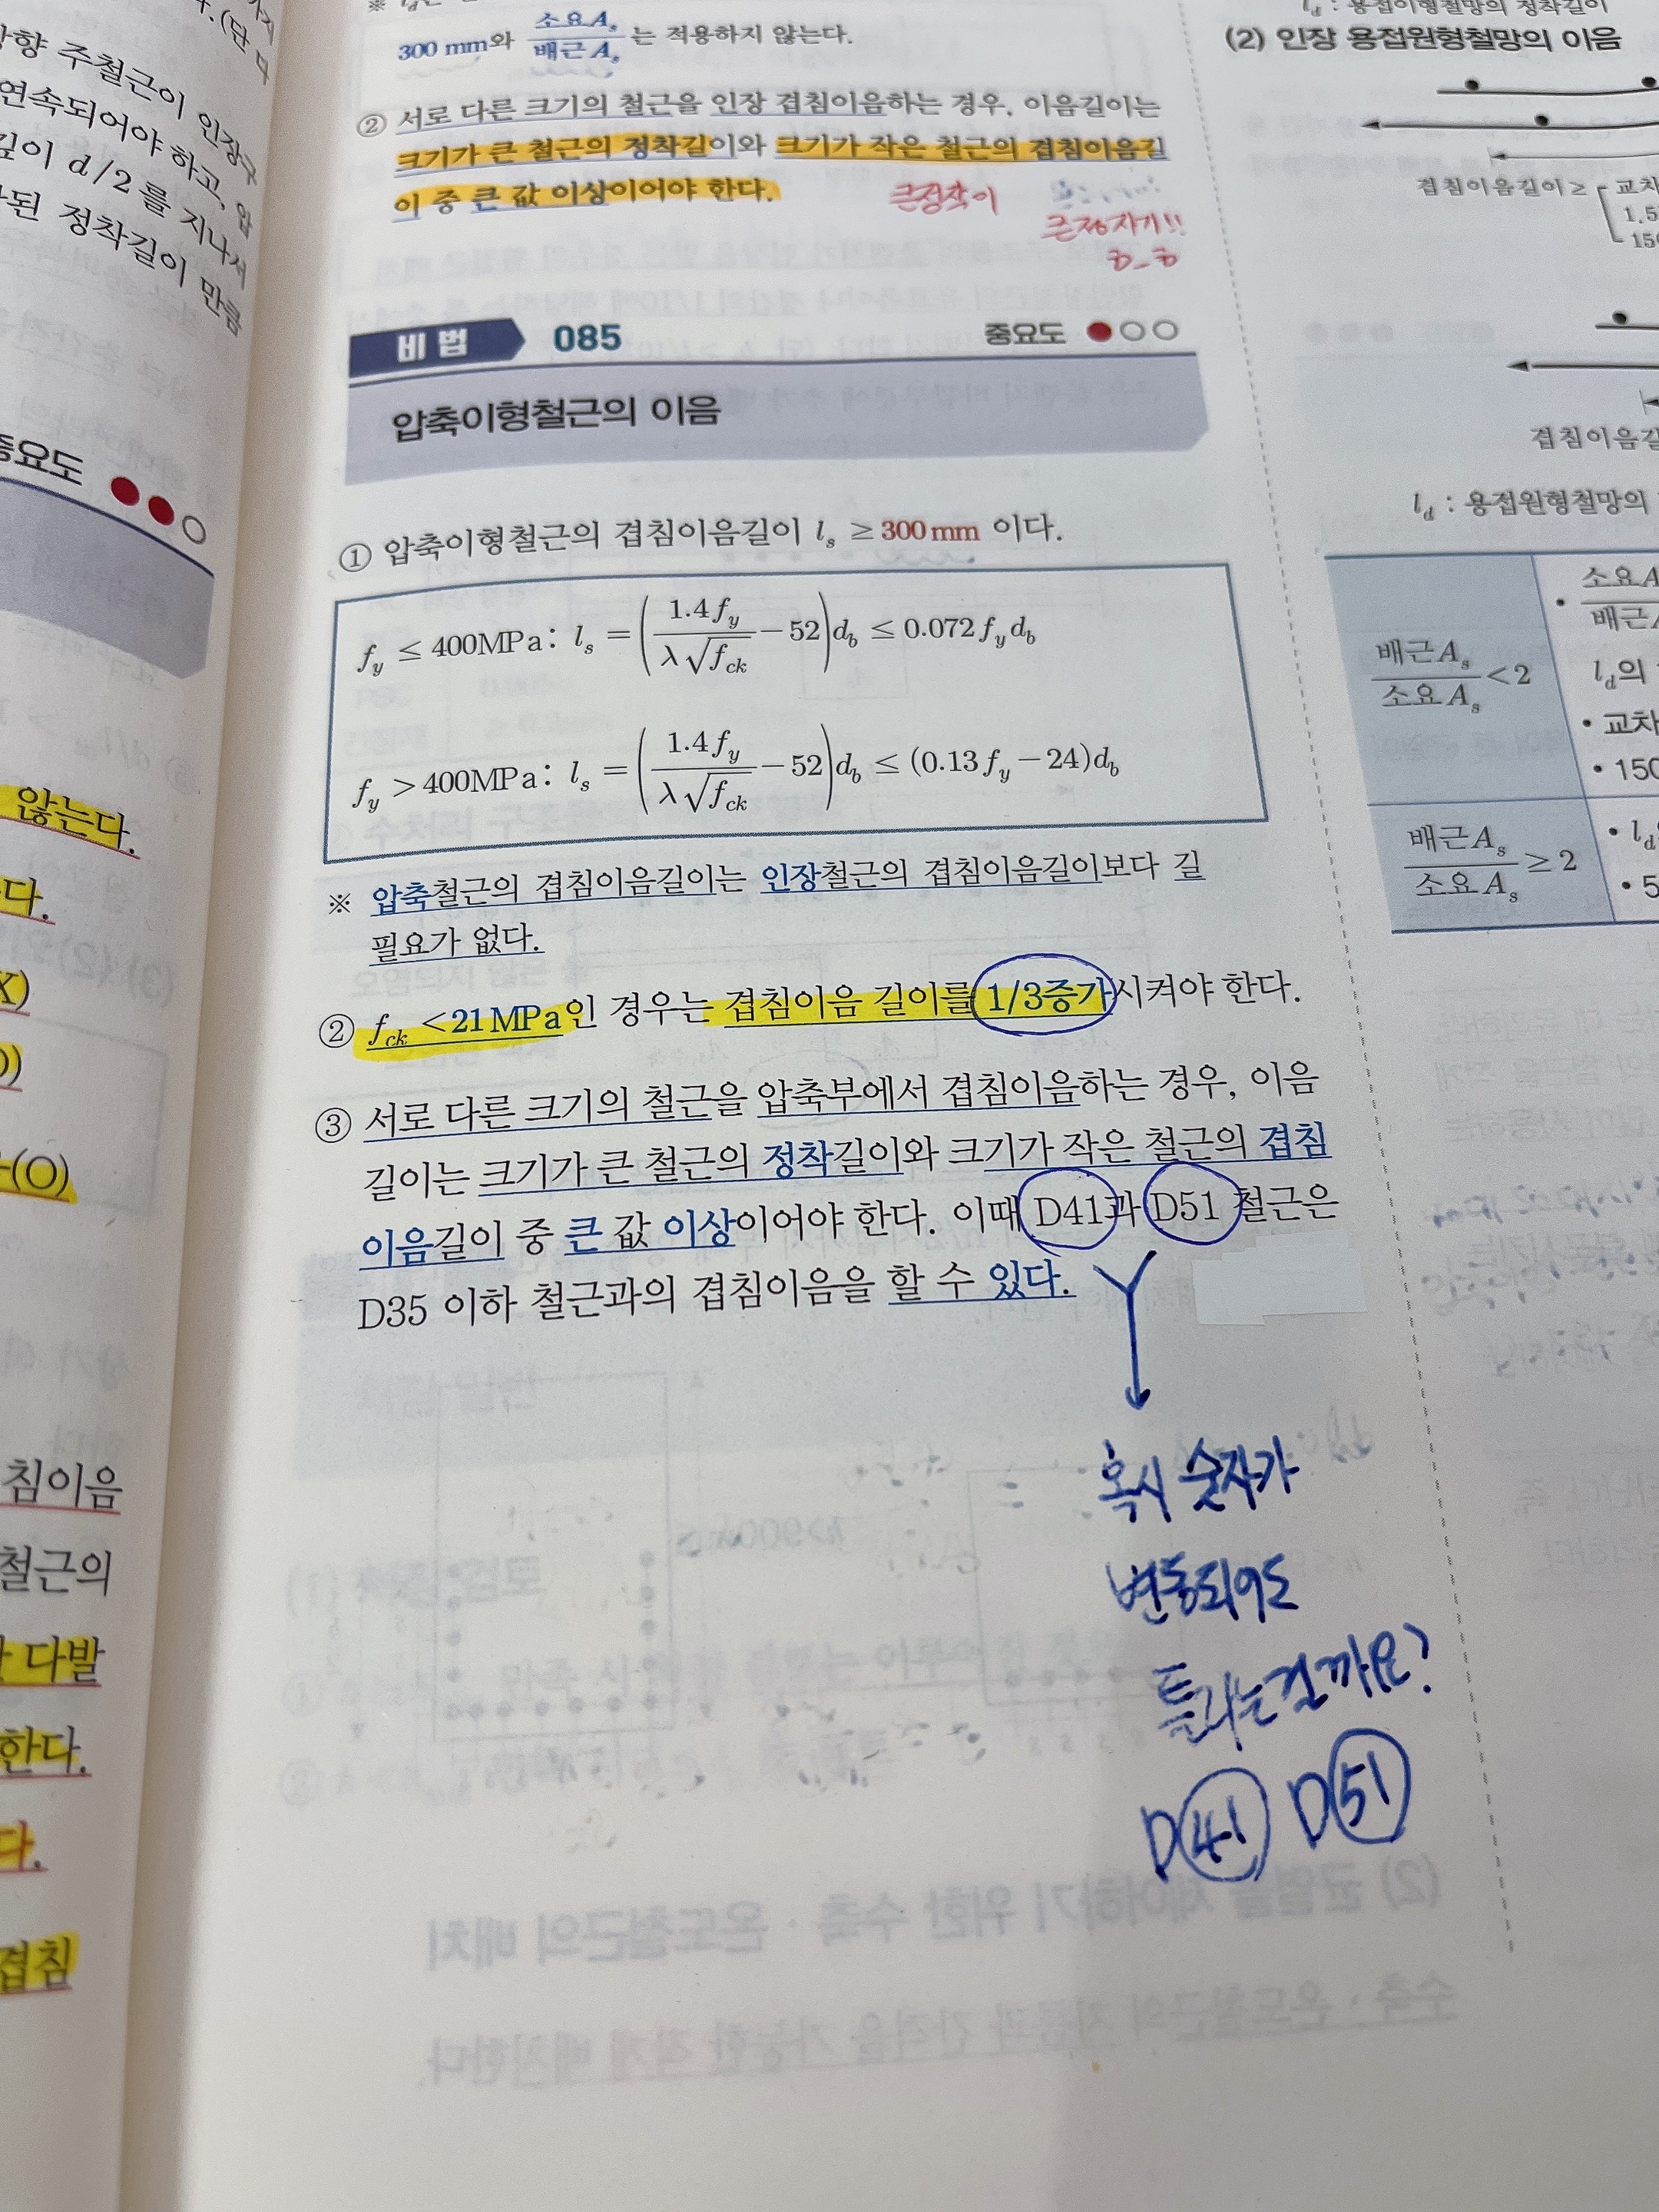 향 주철근이 인장구
연속되어야 하고, 압
깊이 d/2를 지나서
된 정착길이 만큼
중요도
않는다.
다.
X)
(O)
침이음
철근의
다발
한다.
다.
겹침
300 mm와 소요A_s/배근A_s는 적용하지 않는다.
② 서로 다른 크기의 철근을 인장 겹침이음하는 경우, 이음길이는
크기가 큰 철근의 정착길이와 크기가 작은 철근의 겹침이음길
이 중 큰 값 이상이어야 한다.
큰정작이
비법 085 중요도
압축이형철근의 이음
① 압축이형철근의 겹침이음길이 l_s ≥ 300mm 이다.
f_y ≤ 400MPa: l_s = (1.4f_y/λ√f_ck − 52)d_b ≤ 0.072f_y d_b
f_y > 400MPa: l_s = (1.4f_y/λ√f_ck − 52)d_b ≤ (0.13f_y − 24)d_b
※ 압축철근의 겹침이음길이는 인장철근의 겹침이음길이보다 길
필요가 없다.
② f_ck < 21MPa인 경우는 겹침이음 길이를 1/3증가시켜야 한다.
③ 서로 다른 크기의 철근을 압축부에서 겹침이음하는 경우, 이음
길이는 크기가 큰 철근의 정착길이와 크기가 작은 철근의 겹침
이음길이 중 큰 값 이상이어야 한다. 이때 D41과 D51 철근은
D35 이하 철근과의 겹침이음을 할 수 있다.
혹시 숫자가
변동되어도
틀리는걸까요?
D41 D51
l_d : 용접이형철망의 정착길이
(2) 인장 용접원형철망의 이음
겹침이음길이≥ 교차
1.5
150
겹침이음길
l_d : 용접원형철망의
배근A_s/소요A_s < 2
• 소요A/배근A
l_d의
• 교차
• 150
배근A_s/소요A_s ≥ 2
• l_d
• 5